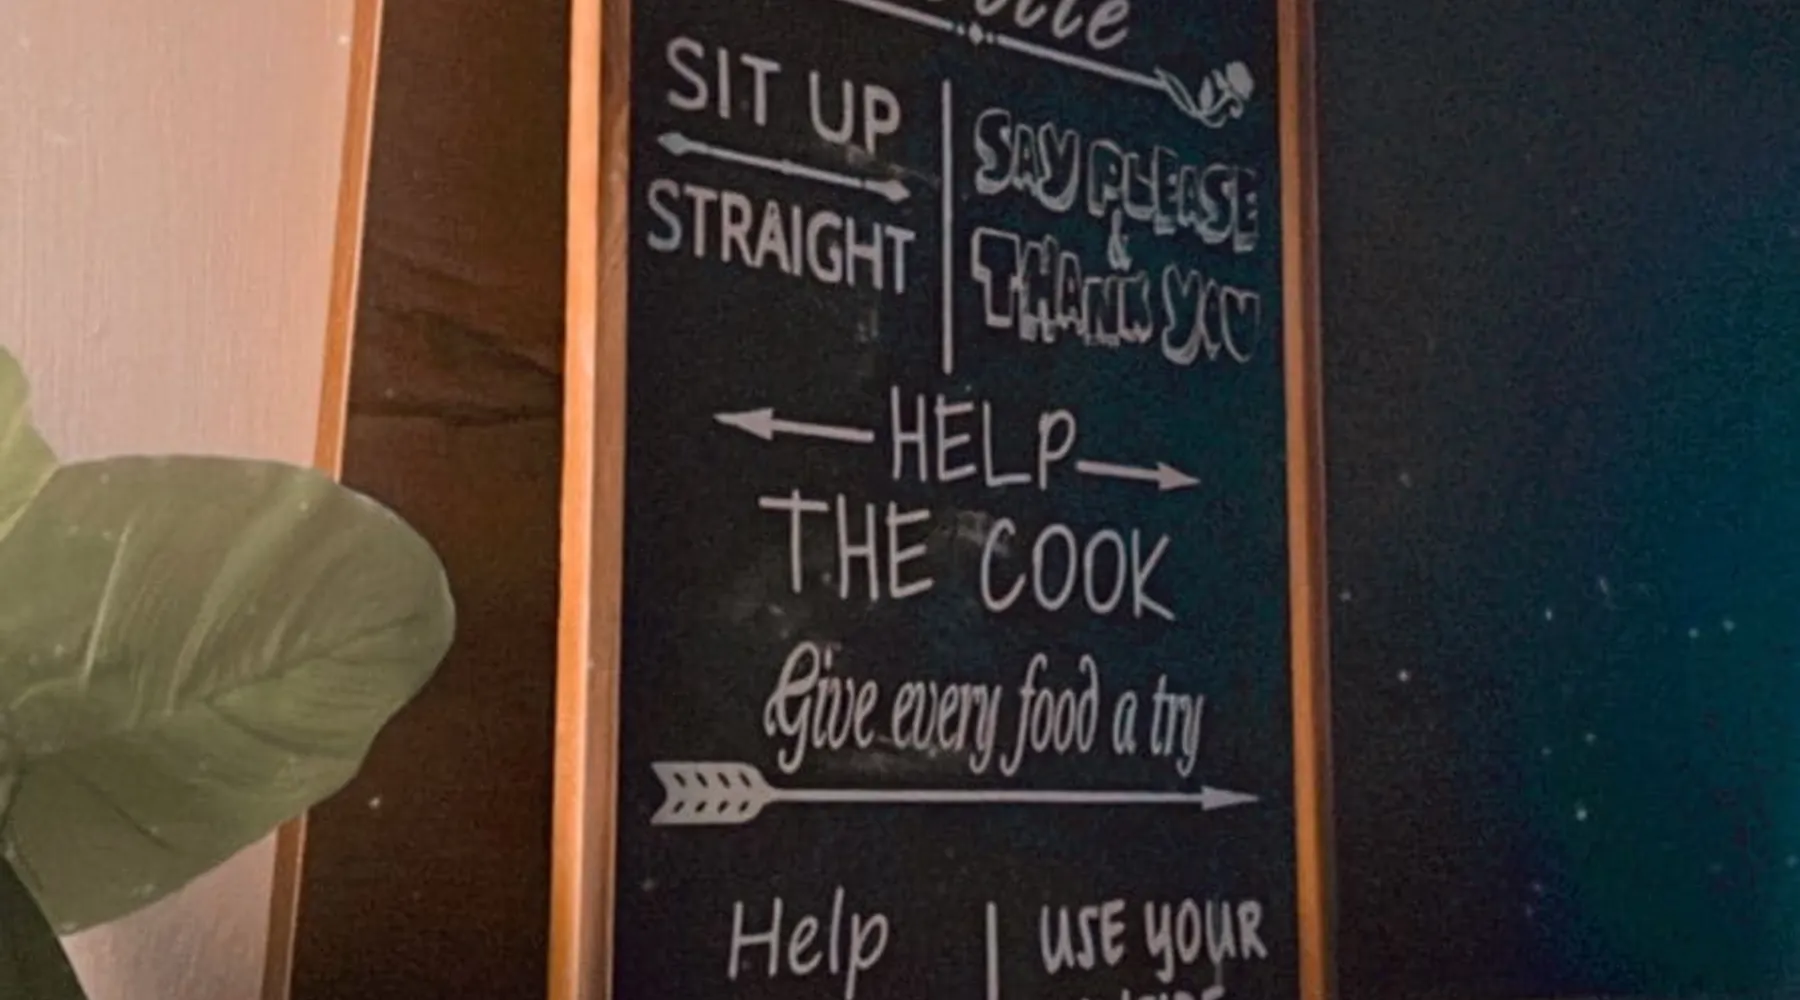 SIT UP
STRAIGHT
SAY PLEASE
&
THANK YOU
HELP
THE COOK
Give every food a try
Help
USE YOUR